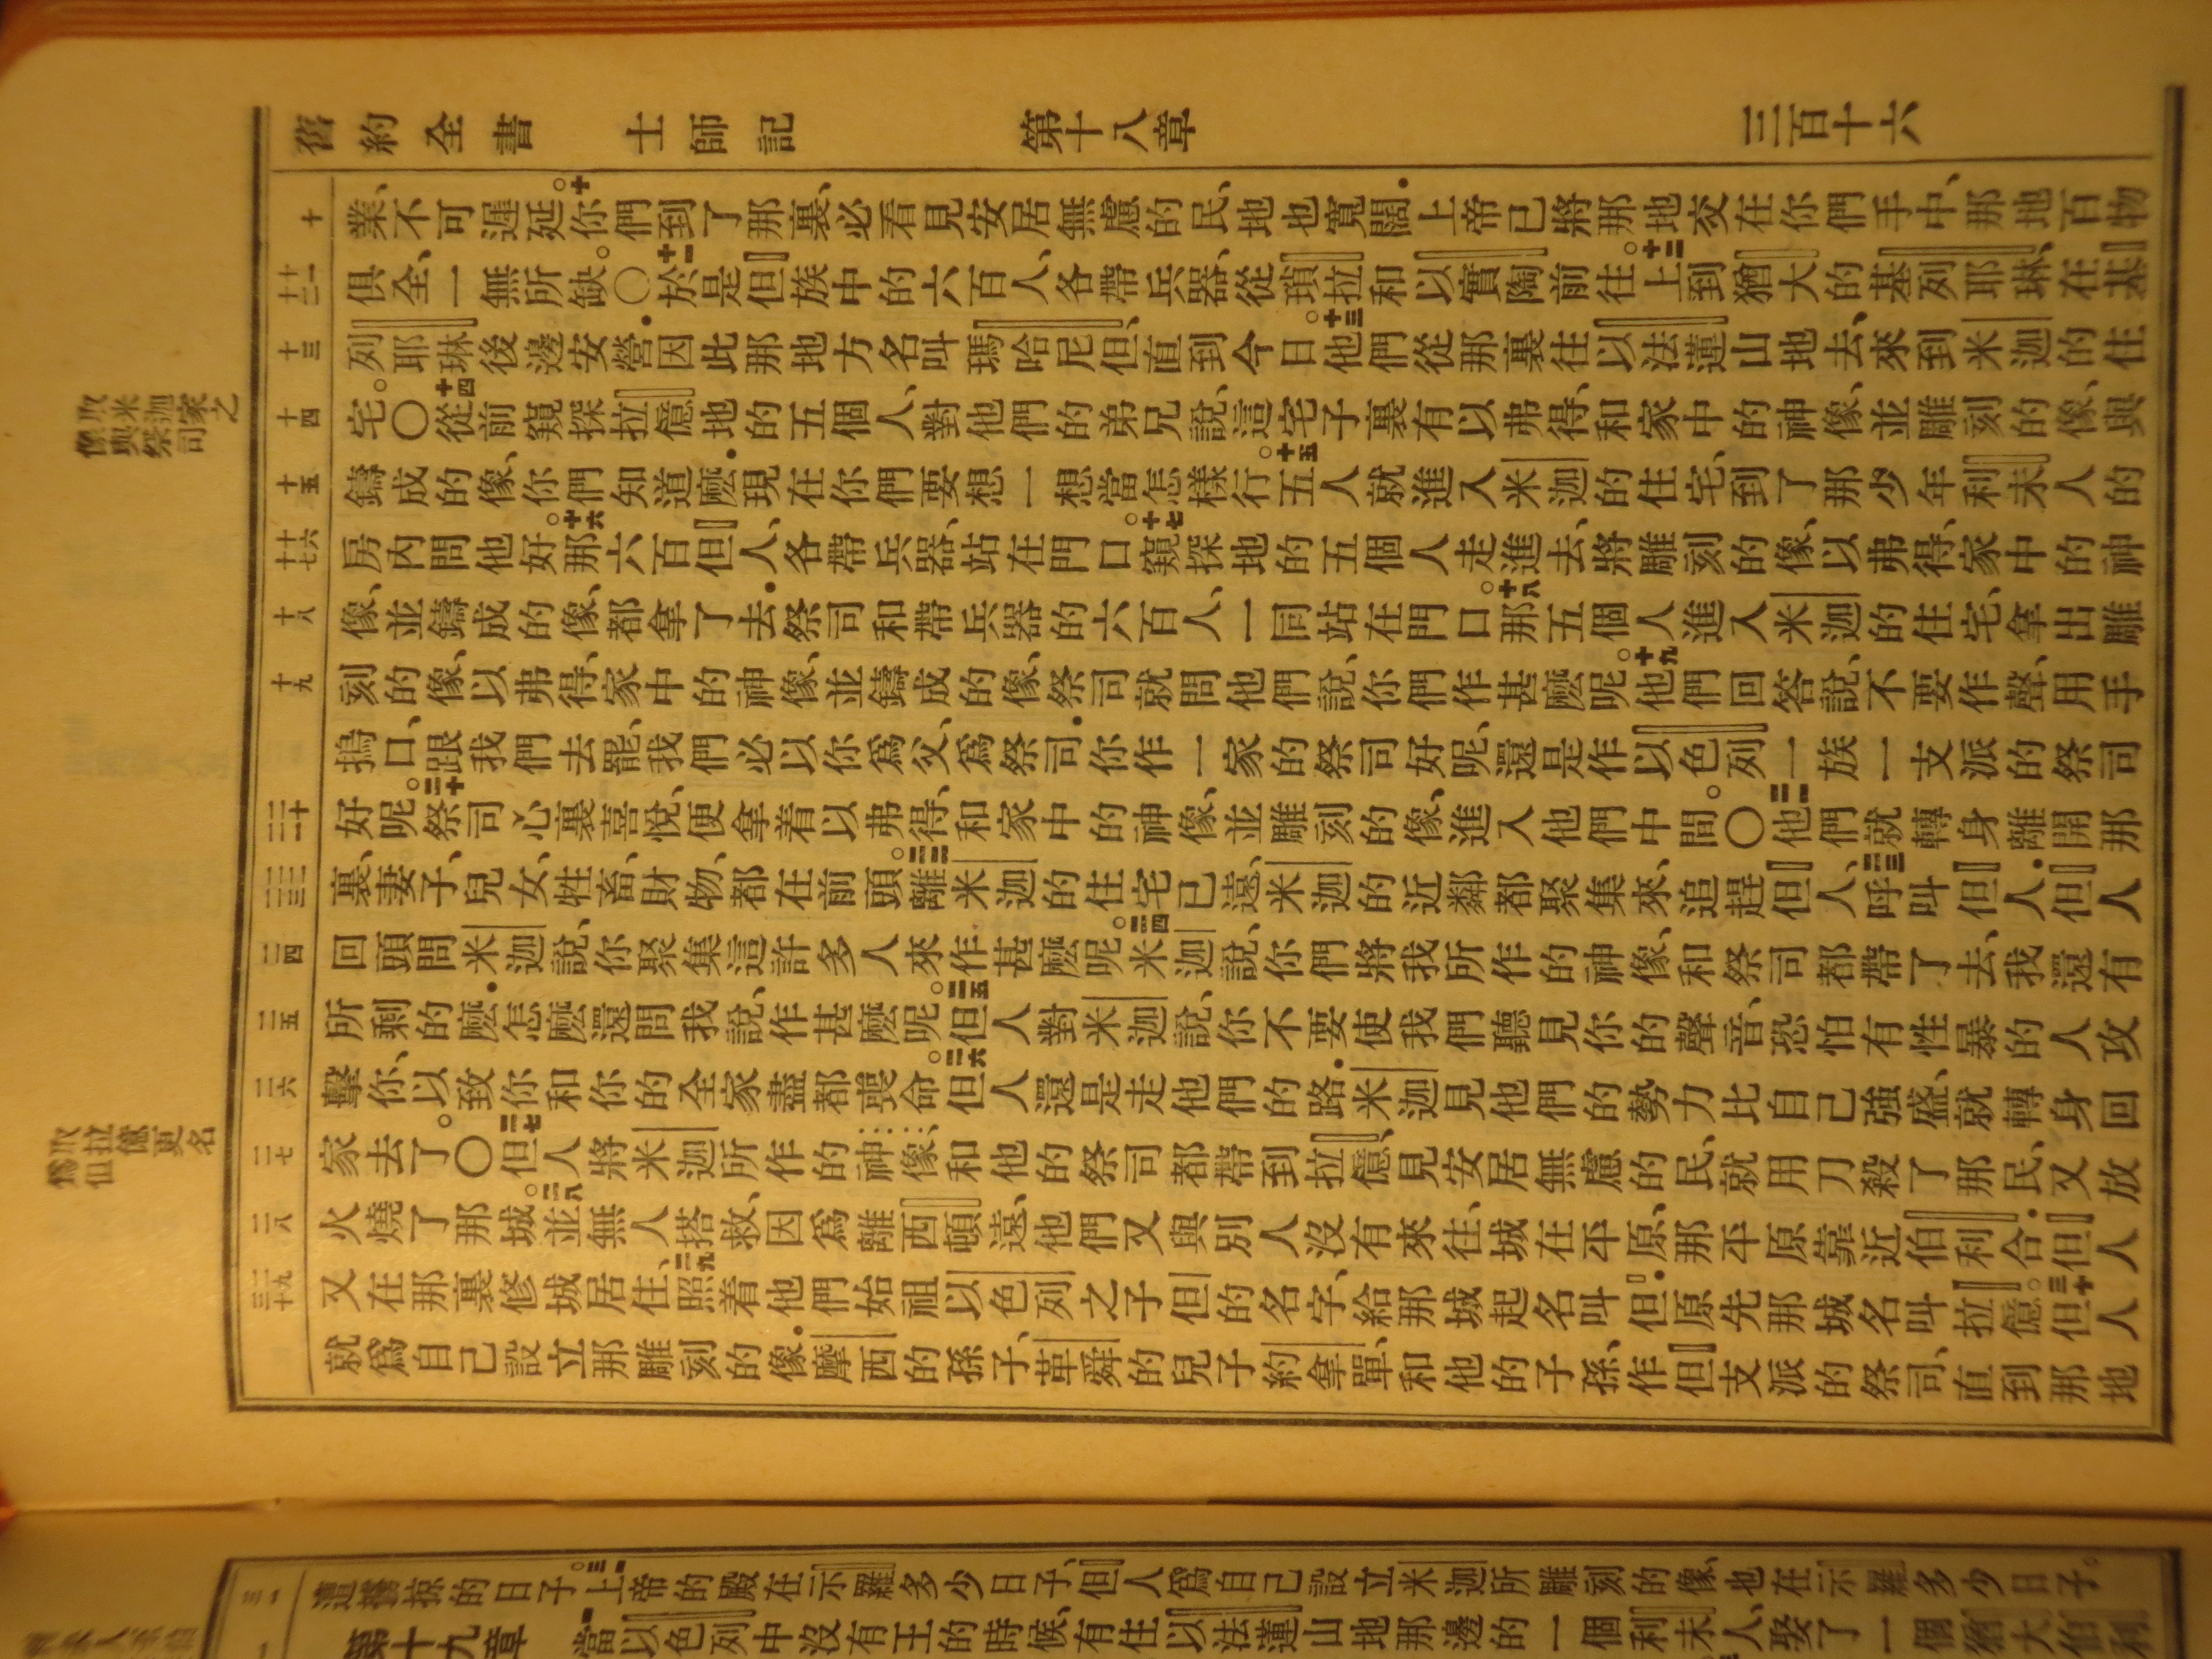 舊約全書 士師記 第十八章 三百十六
十
業、不可遲延。十你們到了那裏、必看見安居無慮的民、地也寬闊.上帝已將那地交在你們手中、那地百物
十一 十二
俱全、一無所缺。〇十一於是但族中的六百人、各帶兵器、從瑣拉和以實陶前往。十二上到猶大的基列耶琳、在基
十三
列耶琳後邊安營.因此那地方名叫瑪哈尼但、直到今日。十三他們從那裏往以法蓮山地去、來到米迦的住
十四
宅。〇十四從前窺探拉億地的五個人、對他們的弟兄說、這宅子裏有以弗得、和家中的神像、並雕刻的像、與
十五
鑄成的像、你們知道麼.現在你們要想一想當怎樣行。十五五人就進入米迦的住宅、到了那少年利未人的
十六 十七
房內問他好。十六那六百但人、各帶兵器、站在門口。十七窺探地的五個人走進去、將雕刻的像、以弗得、家中的神
十八
像、並鑄成的像、都拿了去.祭司和帶兵器的六百人、一同站在門口。十八那五個人進入米迦的住宅、拿出雕
十九
刻的像、以弗得、家中的神像、並鑄成的像、祭司就問他們說、你們作甚麼呢。十九他們回答說、不要作聲、用手
摀口、跟我們去罷、我們必以你爲父、爲祭司.你作一家的祭司好呢、還是作以色列一族一支派的祭司
二十 二一
好呢。二十祭司心裏喜悅、便拿着以弗得、和家中的神像、並雕刻的像、進入他們中間。〇二一他們就轉身離開那
二二 二三
裏、妻子、兒女、牲畜、財物、都在前頭。二二離米迦的住宅已遠、米迦的近鄰都聚集來、追趕但人、二三呼叫但人.但人
二四
回頭問米迦說、你聚集這許多人來作甚麼呢。二四米迦說、你們將我所作的神像、和祭司都帶了去、我還有
二五
所剩的麼.怎麼還問我說、作甚麼呢。二五但人對米迦說、你不要使我們聽見你的聲音、恐怕有性暴的人攻
二六
擊你、以致你和你的全家盡都喪命。二六但人還是走他們的路.米迦見他們的勢力比自己強盛、就轉身回
二七
家去了。〇二七但人將米迦所作的神像、和他的祭司都帶到拉億、見安居無慮的民、就用刀殺了那民、又放
二八
火燒了那城。二八並無人搭救、因爲離西頓遠、他們又與別人沒有來往、城在平原、那平原靠近伯利合.但人
二九 三十
又在那裏修城居住、二九照着他們始祖以色列之子但的名字、給那城起名叫但.原先那城名叫拉億。三十但人
就爲自己設立那雕刻的像.摩西的孫子、革舜的兒子約拿單、和他的子孫、作但支派的祭司、直到那地
取米迦家之
像與祭司
取拉億更名
爲但
三一
遭擄掠的日子。三一上帝的殿在示羅多少日子、但人爲自己設立米迦所雕刻的像、也在示羅多少日子。
一
第十九章 一當以色列中沒有王的時候、有住以法蓮山地那邊的一個利未人、娶了一個猶大伯利